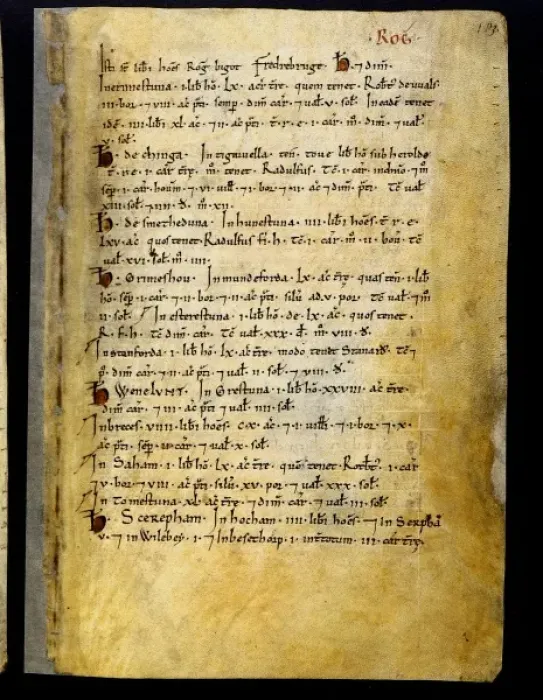 Rog
181
Isti st̄ libi hōēs Rog bigot Fredrebruge . H̄ . ⁊ dim̄ .
Inermestuna . i . lib hō . Lx . ac̄ tr̄e . quem tenet . Robt᷒ deuuals .
iii . bor . ⁊ viii . ac̄ p̄ti semp . dim̄ car̄ . ⁊ ual̄ . v . sol̄ . Ineadē tenet
idē . iiii . libi xl ac̄ . ⁊ ii . ac̄ p̄ti . t . r . e . i . car̄ . m̄ . dim̄ . ⁊ ual̄
v . sol̄ .
H̄ . de chinga . In tigauuella . ten̄ . toue lib hō sub heroldo
t . r . e . i . car̄ tr̄e . m̄ . tenet . Radulfus . Tc̄ . i . car̄ indnio . ⁊ m̄
sēp . i . car̄ houm̄ . ⁊ vi . uill̄ . ⁊ i . bor . ⁊ ii . ac̄ ⁊ dim̄ . p̄ti . Tc̄ ual̄
xiii . sol̄ . ⁊ iiii . d̄ . m̄ . xii .
H̄ . de smetheduna . In hunestuna . iiii . libi hōēs . t . r . e .
Lxv . ac̄ quos tenet Radulfus fi . h . Tc̄ . i . car̄ . m̄ . ii . bou . tc̄
ual̄ . xvi . sol̄ . m̄ . iiii .
H̄ . Grimeshou . In mundeforda . Lx . ac̄ tr̄e . quas ten̄ . i . lib
hō . sēp . i . car̄ . ⁊ ii . bor . ⁊ ii . ac̄ p̄ti . silū ad . v . por . Tc̄ ual̄ . ⁊ m̄
ii . sol̄ . In esterestuna . i . lib hō . de . lx . ac̄ . quos tenet .
R . f . h . Tc̄ dim̄ . car̄ . Tc̄ ual̄ . xxx . d̄ . m̄ . viii . d̄ .
In stanforda . i . lib hō . Lx . ac̄ tr̄e . modo tenet Stanard᷒ . tc̄ ⁊
p᷒ . dim̄ car̄ . ⁊ ii . ac̄ p̄ti . ⁊ ual̄ . ii . sol̄ . ⁊ viii . d̄ .
H̄ . Wenelunt . In Grestuna . i . lib hō . xxviii . ac̄ tr̄e .
dim̄ car̄ . ⁊ iii . ac̄ p̄ti ⁊ ual̄ . iiii . sol̄ .
Inbreces . viiii . libi hōēs . cx . ac̄ . ⁊ i . uill̄ . ⁊ i . bor . ⁊ x .
ac̄ p̄ti . sēp . ii . car̄ . ⁊ ual̄ . x . sol̄ .
In Saham . i . lib hō . Lx . ac̄ tr̄e . quē tenet . Rotbt᷒ . i . car̄
⁊ v . bor . ⁊ viii . ac̄ p̄ti . silū . xv . por . ⁊ ual̄ . xxx . sol̄ .
In Tomestuna . xl . ac̄ tr̄e . ⁊ dim̄ car̄ . ⁊ ual̄ . iii . sol̄ .
H̄ . Scerepham . In hocham . iiii . libi hōēs . ⁊ In Serphā
v . ⁊ in Wilebey . i . ⁊ Inbesethorp . i . int̄totum . iii . car̄ tr̄e .